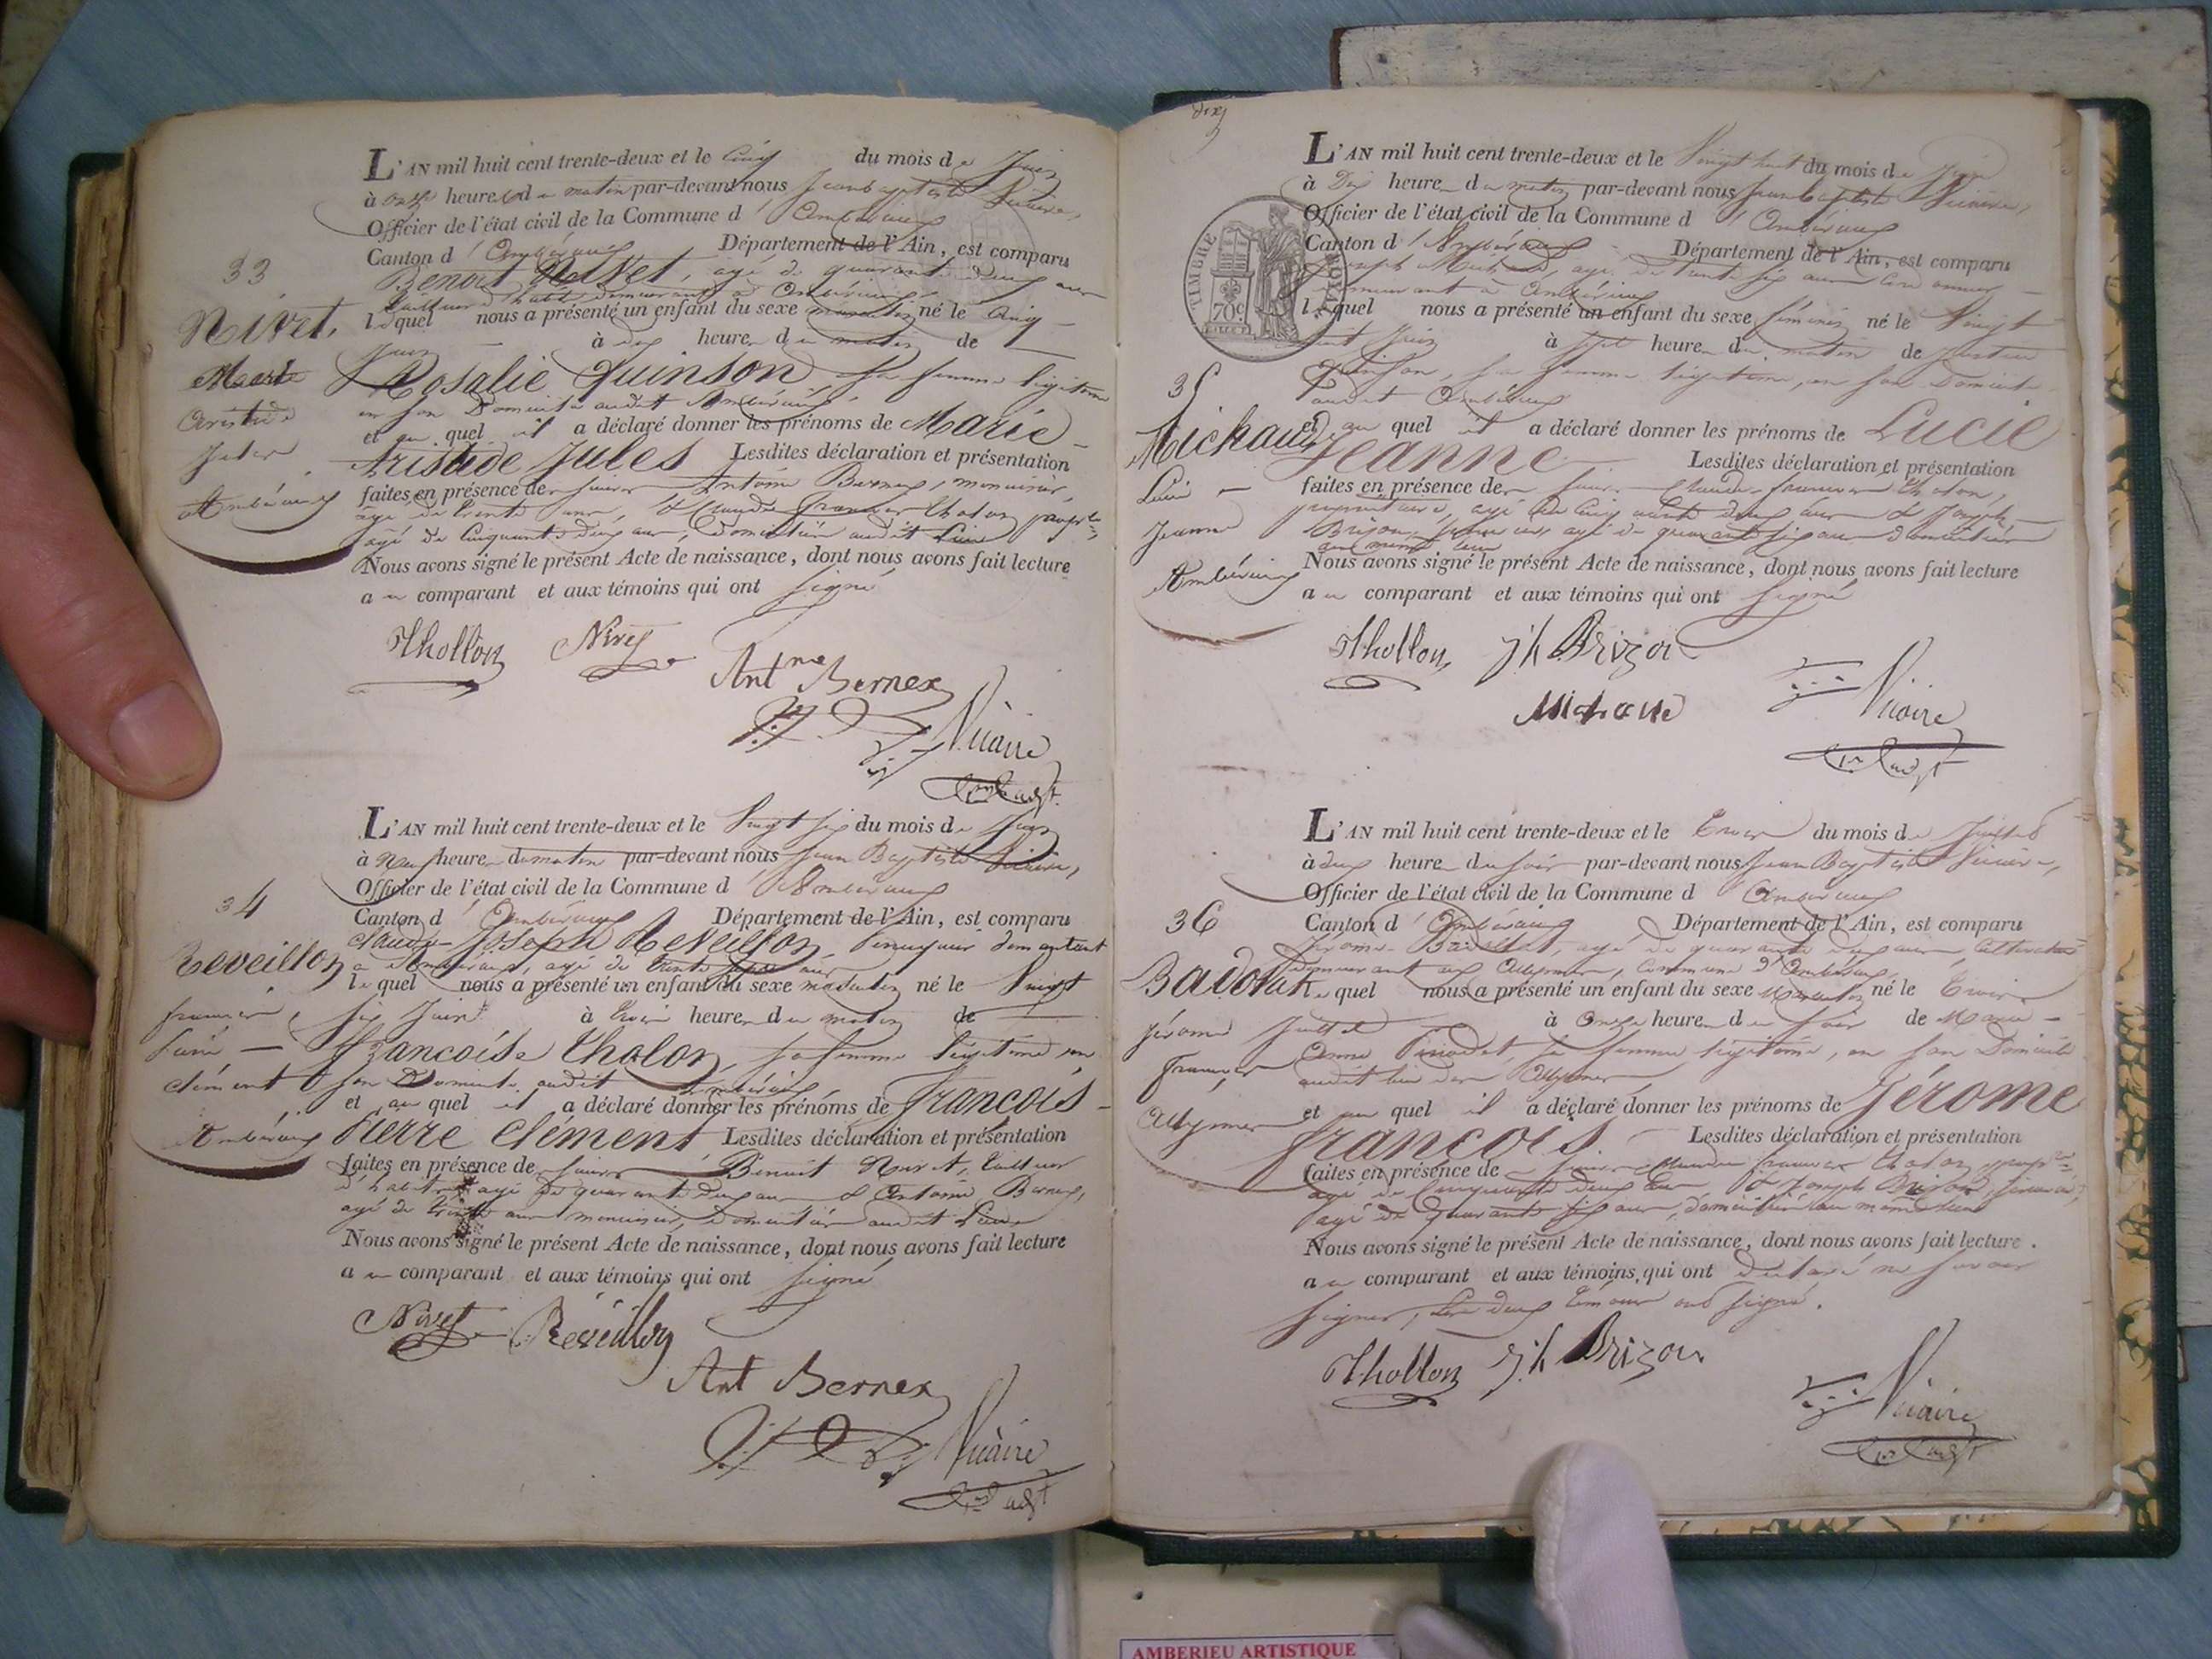 L'AN mil huit cent trente-deux et le cinq du mois de Juin
à onze heures du matin par-devant nous Jean Baptiste Vicaire,
Officier de l'état civil de la Commune d'Ambérieux
Canton d'Ambérieux Département de l'Ain, est comparu
Benoit Nivet, agé de quarante deux ans
tailleur d'habits demeurant à Ambérieux
lequel nous a présenté un enfant du sexe masculin né le cinq
Juin à dix heure du matin de
Rosalie Quinson sa femme légitime
en son Domicile audit Ambérieux
et au quel il a déclaré donner les prénoms de Marie
Aristide Jules Lesdites déclaration et présentation
faites en présence de sieurs Antoine Bernex, menuisier,
âgé de trente ans, & Claude François Tholon
agé de Cinquante deux ans, domiciliés audit Lieu
Nous avons signé le présent Acte de naissance, dont nous avons fait lecture
au comparant et aux témoins qui ont signé
33
Nivet,
Marie
Aristide
Jules
Ambérieux
Thollon Nivet
Ant Bernex
Vicaire
L'AN mil huit cent trente-deux et le Vingt six du mois de Juin
à Neuf heure du matin par-devant nous Jean Baptiste Vicaire,
Officier de l'état civil de la Commune d'Ambérieux
Canton d'Ambérieux Département de l'Ain, est comparu
Claude Joseph Reveillon, demeurant
à Ambérieux, agé de trente ans
le quel nous a présenté un enfant du sexe masculin né le Vingt
six Juin à trois heure du matin de
Françoise Tholon, sa femme légitime en
son Domicile audit Ambérieux,
et au quel il a déclaré donner les prénoms de François
Pierre Clément, Lesdites déclaration et présentation
faites en présence de sieurs Benoit Nivet, tailleur
d'habits agé de quarante deux ans & Antoine Bernex,
agé de trente ans menuisier, domiciliés audit Lieu
Nous avons signé le présent Acte de naissance, dont nous avons fait lecture
au comparant et aux témoins qui ont signé
34
Reveillon
François
Pierre
Clément
Ambérieux
Nivet Réveillon
Ant Bernex
Vicaire
TIMBRE ROYAL
70c
L'AN mil huit cent trente-deux et le Vingt huit du mois de Juin
à Dix heure du matin par-devant nous Jean Baptiste Vicaire,
Officier de l'état civil de la Commune d'Ambérieux
Canton d'Ambérieux Département de l'Ain, est comparu
Joseph Michaud, agé de trente six ans Cordonnier
demeurant à Ambérieux
lequel nous a présenté un enfant du sexe féminin né le Vingt
huit Juin à sept heure du matin de
Quinson, sa femme légitime, en son Domicile
audit Ambérieux
et au quel il a déclaré donner les prénoms de Lucie
Jeanne Lesdites déclaration et présentation
faites en présence de sieurs Claude François Tholon,
propriétaire, agé de Cinquante deux ans & Joseph
Brizon, agé de quarante six ans domiciliés
au même lieu
Nous avons signé le présent Acte de naissance, dont nous avons fait lecture
au comparant et aux témoins qui ont signé
35
Michaud
Lucie
Jeanne
Ambérieux
Thollon, Jh Brizon
Michaud
Vicaire
L'AN mil huit cent trente-deux et le Trois du mois de Juillet
à deux heure du soir par-devant nous Jean Baptiste Vicaire,
Officier de l'état civil de la Commune d'Ambérieux
Canton d'Ambérieux Département de l'Ain, est comparu
Jérome Badollat, agé de quarante ans, cultivateur
demeurant aux Allymes, commune d'Ambérieux,
le quel nous a présenté un enfant du sexe Masculin né le Trois
Juillet à Onze heure du soir de Marie
Anne sa femme légitime, en son Domicile
audit lieu des Allymes
et au quel il a déclaré donner les prénoms de Jérome
François. Lesdites déclaration et présentation
faites en présence de sieurs Claude François Tholon
agé de Cinquante deux ans & Joseph Brizon,
agé de Quarante six ans, domiciliés au même lieu
Nous avons signé le présent Acte de naissance, dont nous avons fait lecture
au comparant et aux témoins qui ont déclaré ne savoir
signer, les deux témoins ont signé.
36
Badollat
Jérome
François
Allymes
Thollon Jh Brizon
Vicaire
AMBERIEU ARTISTIQUE